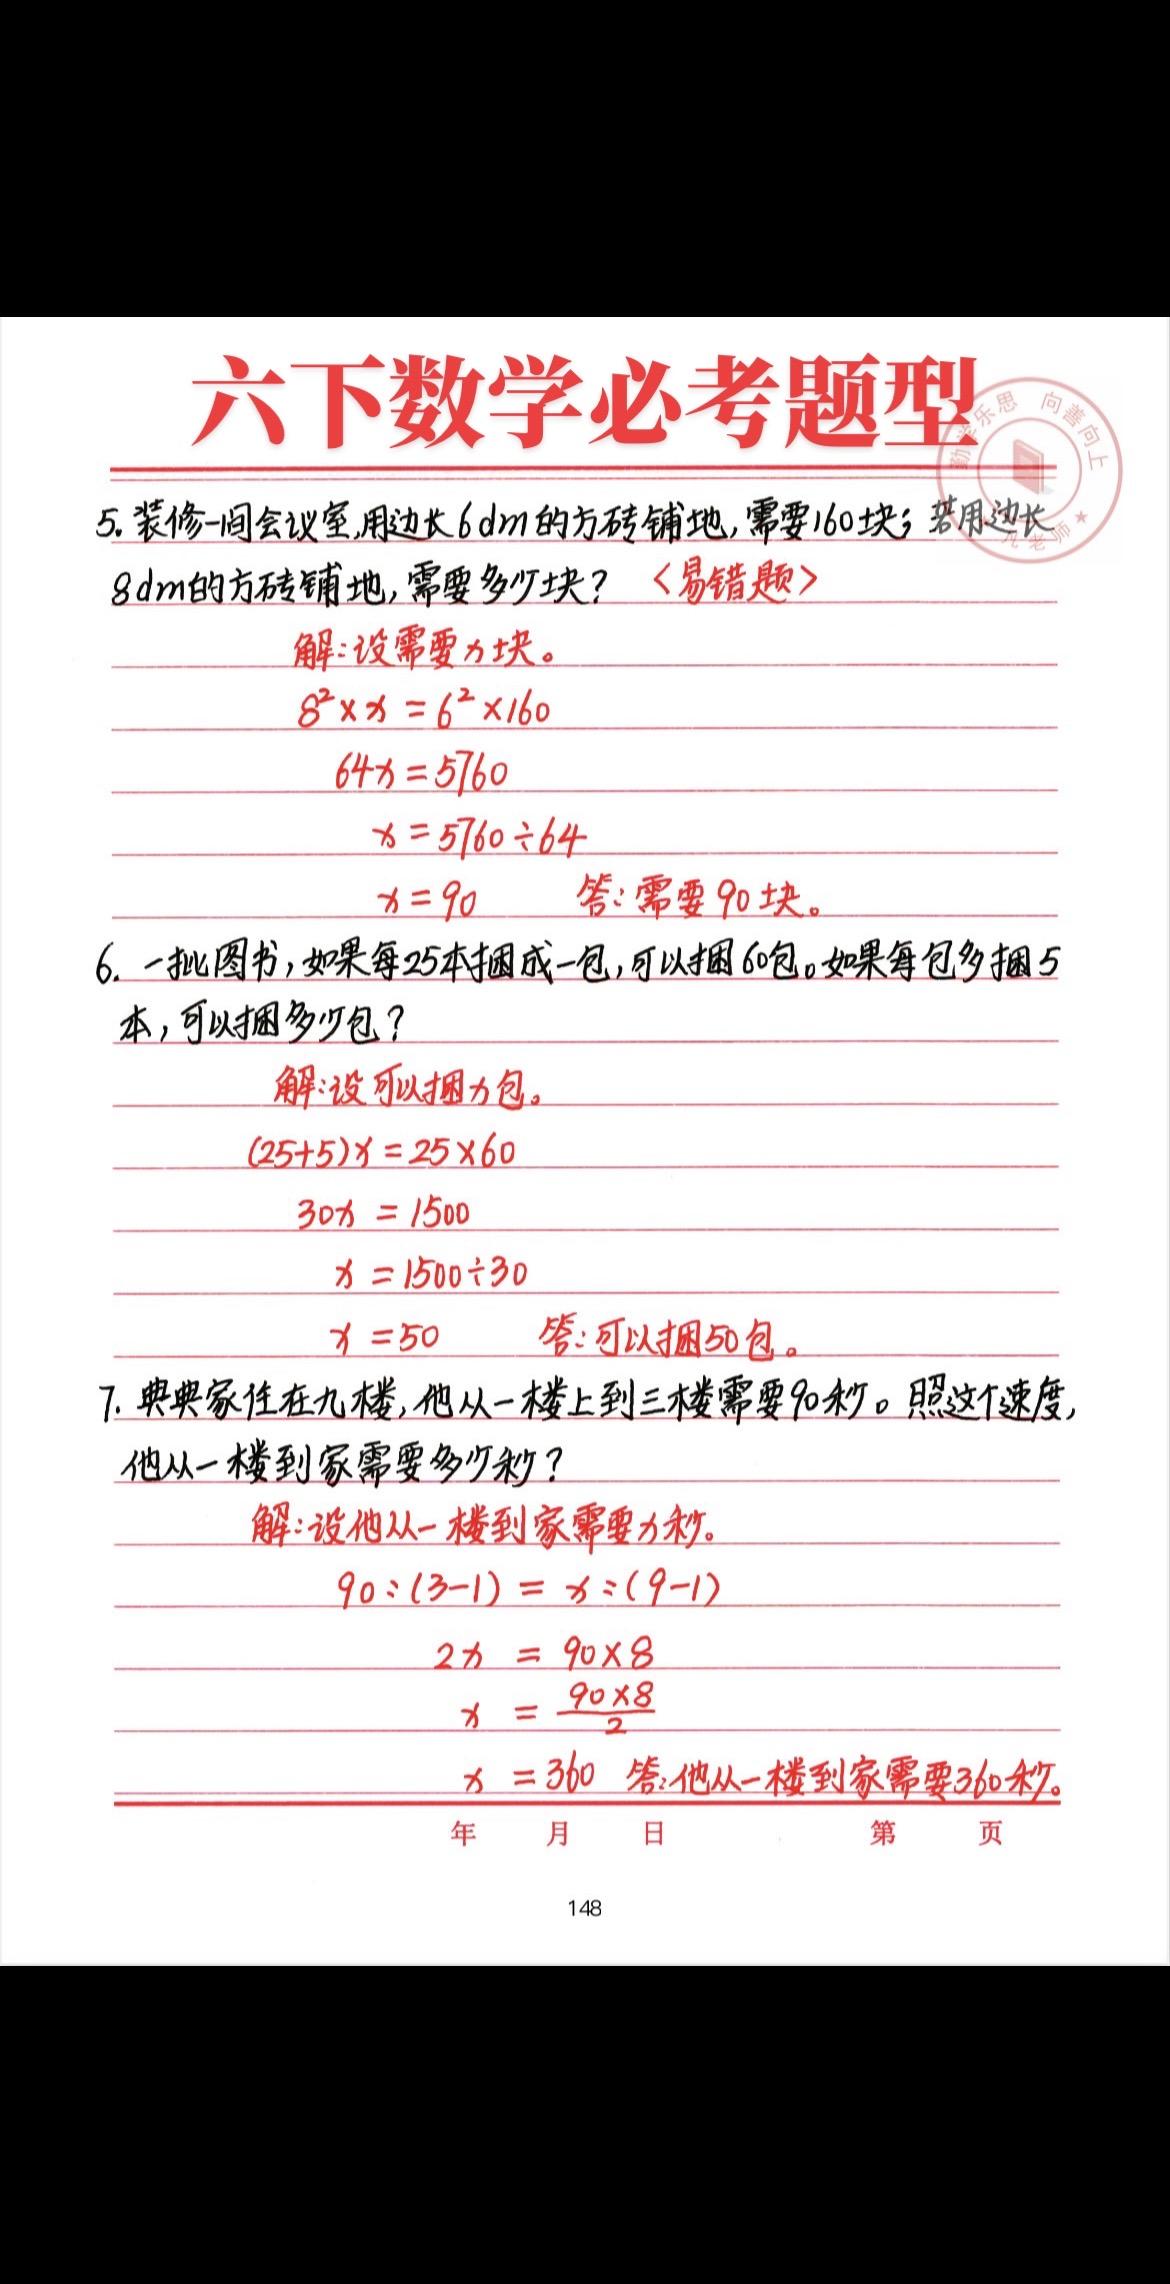 六下数学必考题型
勤学乐思 向善向上
凡老师
5. 装修一间会议室,用边长6dm的方砖铺地,需要160块;若用边长
8dm的方砖铺地,需要多少块? <易错题>
解:设需要x块。
8²×x=6²×160
64x=5760
x=5760÷64
x=90 答:需要90块。
6. 一批图书,如果每25本捆成一包,可以捆60包。如果每包多捆5
本,可以捆多少包?
解:设可以捆x包。
(25+5)x=25×60
30x=1500
x=1500÷30
x=50 答:可以捆50包。
7. 典典家住在九楼,他从一楼上到三楼需要90秒。照这个速度,
他从一楼到家需要多少秒?
解:设他从一楼到家需要x秒。
90:(3-1)=x:(9-1)
2x=90×8
x=90×8/2
x=360 答:他从一楼到家需要360秒。
年 月 日 第 页
148